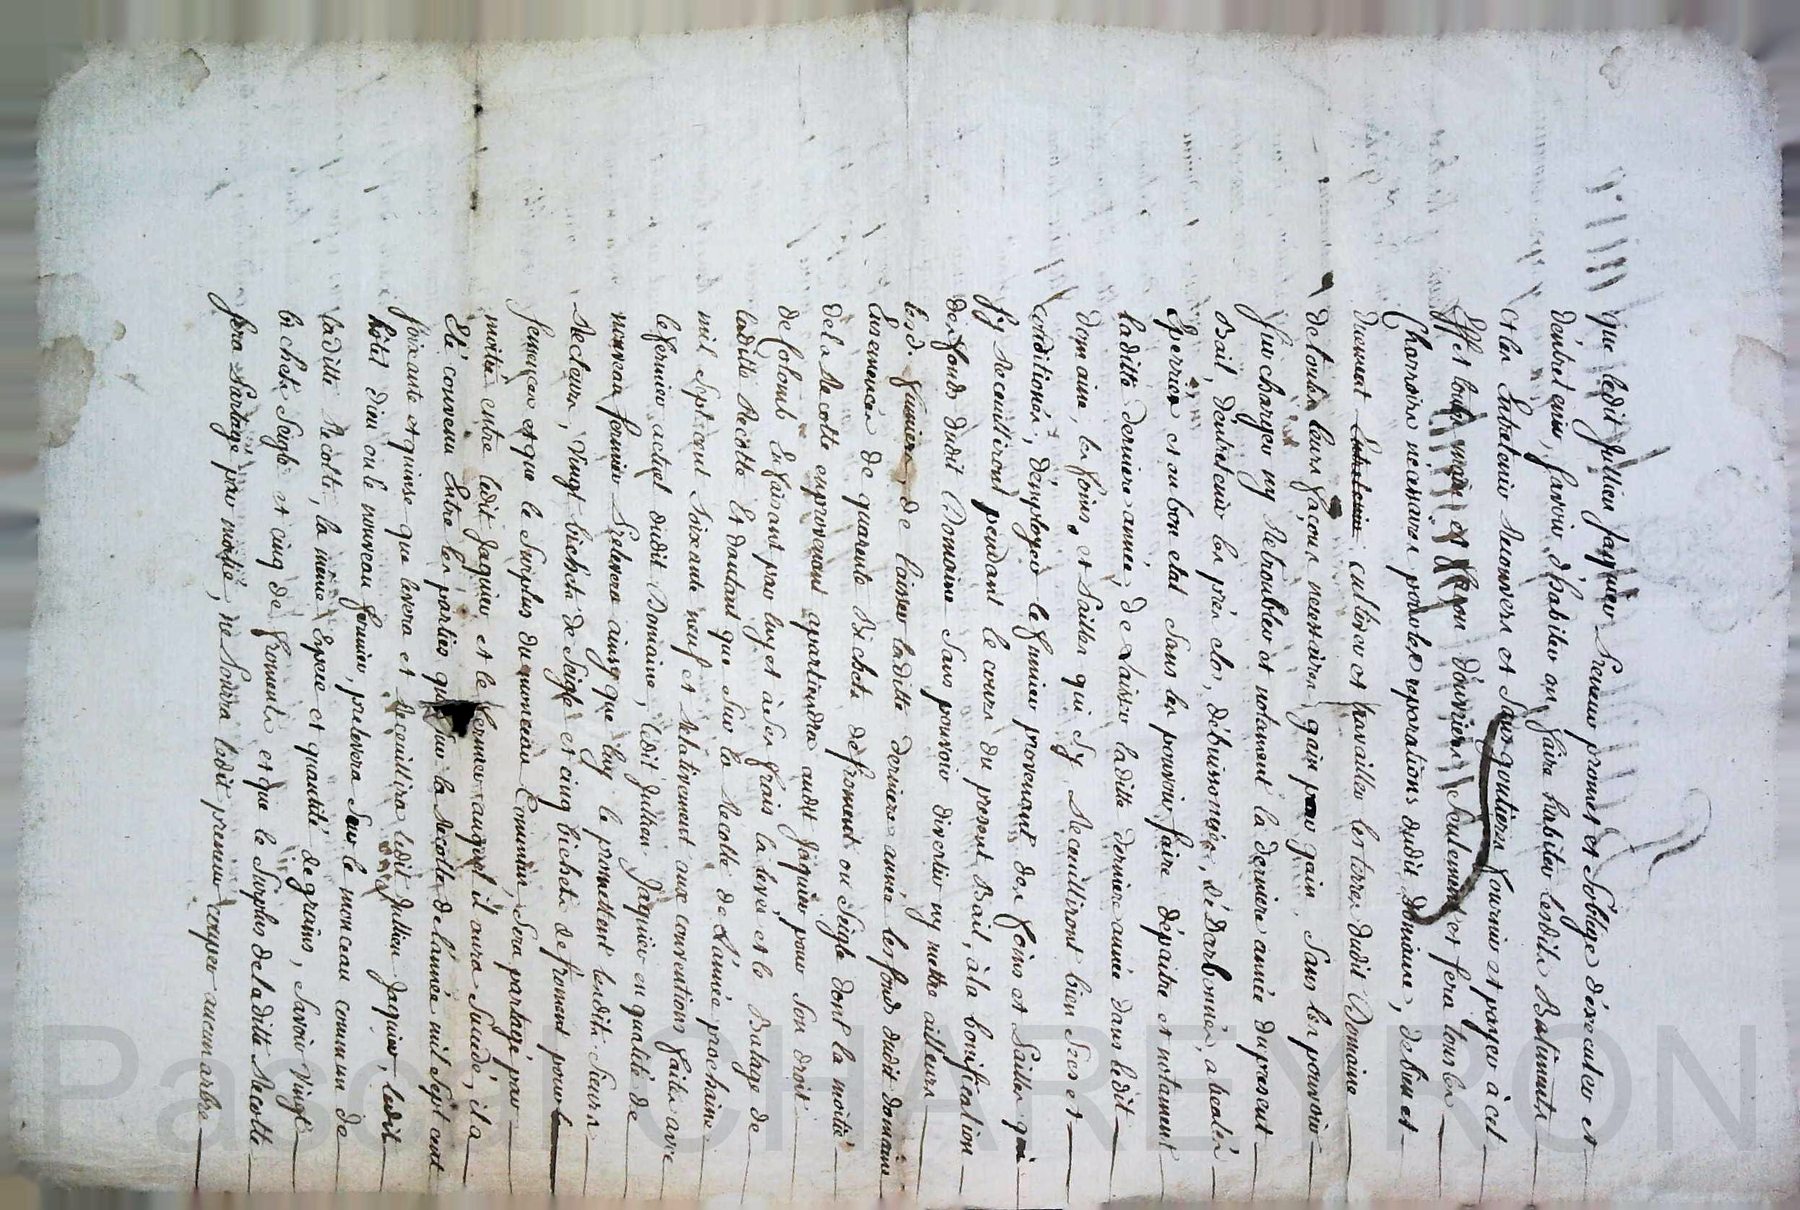 que ledit Jullien Jaquier preneur promet et Soblige d'éxecuter et
d'entretenir, Savoir, d'habiter ou faire habiter lesdits Batiments
et les Entretenir recouverts et Sans goutieres, fournir et payer à cet
Effet d'ouvriers Seulement, et fera tous les
Charroirs necessaires pour les reparations dudit domaine, de bien et
duement cultiver et travailler les terres dudit Domaine
de toutes leurs façons necessaires, gain par gain, Sans les pouvoir
Surcharger ny Retroubler et notament la derniere année du present
Bail, d'entretenir les prés clos, débuissonnés, abealés
Epierrés et au bon etat Sans les pouvoir faire dépaitre et notament
laditte derniere année, de Laisser ladite derniere année dans ledit
domaine, les foins, et Pailles qui S'y Recuilliront bien Secs et
conditionés, d'employer le fumier provenant des foins et Pailles qui
S'y Receuilliront pendant le cours du present Bail, à la bonification
des fonds dudit Domaine Sans pouvoir divertir ny mettre ailleurs
lesd. fumiers, de laisser laditte derniere année les fonds dudit domaine
Ensemencés de quarente Bichets de froment ou Seigle dont la moitié
de la Recolte en provenant apartiendra audit Jaquier pour Son droit
de Colonb En faisant par luy et à Ses frais la levée et le Batage de
ladite Recolte Et dautant que Sur la Recolte de L'année prochaine
mil Sept cent Soixante neuf et Relativement aux conventions faites avec
le fermier actuel dudit Domaine, ledit Julien Jaquier en qualité de
nouveau fermier Prelevera ainsy que luy le promettent lesdits Sieurs
Recteurs, Vingt bichets de Seigle et cinq bichets de froment pour
Semences et que le Surplus du monceau Commun, Sera partagé par
moitié entre ledit Jaquier et le fermier auquel il aura Succedé, il a
Eté convenu Entre les parties que Sur la Recolte de l'année mil Sept cent
Soixante et quinse que levera et Recuillira ledit Jullien Jaquier, ledit
hôtel dieu ou le nouveau fermier, prelevera Sur le monceau commun de
laditte Recolte, la meme Espece et quantité de grains, Savoir Vingt
bichets Seigle et cinq de froments et que le Surplus de laditte Recolte
Sera Partagé par moitié, Ne Pourra ledit preneur couper aucun arbre
Pascal CHAREYRON